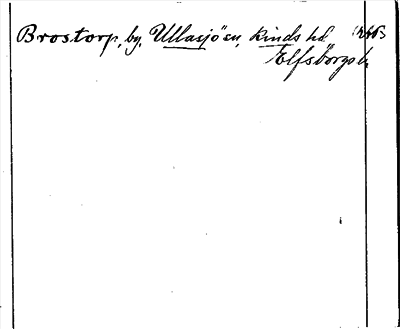 Brostorp, by, Ullasjö sn, Kinds hd.
Elfsborgs l.